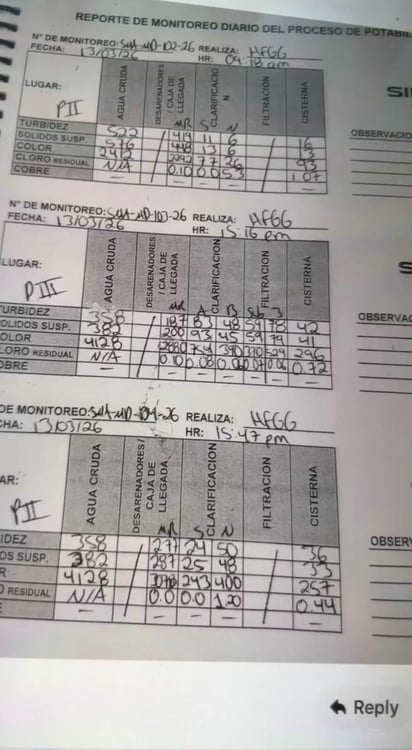 REPORTE DE MONITOREO DIARIO DEL PROCESO DE POTABIL
N° DE MONITOREO: SMA-MD-102-26 REALIZA: HFGG
FECHA: 13/03/26 HR: 04:18 am
LUGAR: PII
AGUA CRUDA DESARENADORES / CAJA DE LLEGADA CLARIFICACION FILTRACION CISTERNA
MR S N
TURBIDEZ 522 414 11 6
SOLIDOS SUSP. 576 448 13 6
COLOR 77 26 93
CLORO RESIDUAL N/A 0.10 0.0 1.07
COBRE — — — — —
OBSERVACIO
N° DE MONITOREO: SMA-MD-103-26 REALIZA: HFGG
FECHA: 13/03/26 HR: 15:16 pm
LUGAR: PIII
AGUA CRUDA DESARENADORES / CAJA DE LLEGADA CLARIFICACION FILTRACION CISTERNA
MR A B
TURBIDEZ 358 187 83 48 59 78 42
SOLIDOS SUSP. 382 200 93 45 59 79 41
COLOR 4128 390 310 529 296
LORO RESIDUAL N/A 0.10 0.06 0.72
OBRE — — — —
OBSERVAC
DE MONITOREO: SMA-MD-104-26 REALIZA: HFGG
CHA: 13/03/26 HR: 15:47 pm
AR: PII
AGUA CRUDA DESARENADORES / CAJA DE LLEGADA CLARIFICACION FILTRACION CISTERNA
MR S N
IDEZ 358 277 24 50 36
OS SUSP. 382 287 25 48 33
R 4128 243 400 257
O RESIDUAL N/A 0.0 0.0 1.20 0.44
— — — — —
OBSERV
Reply